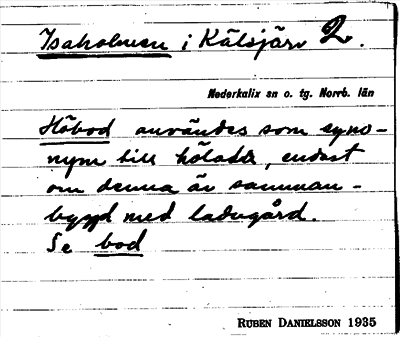 Isaholmen i Kälsjärv 2.
Nederkalix sn o. tg. Norrb. län
Höbod användes som syno-
nym till hölada, endast
om denna är samman-
byggd med ladugård.
Se bod
RUBEN DANIELSSON 1935